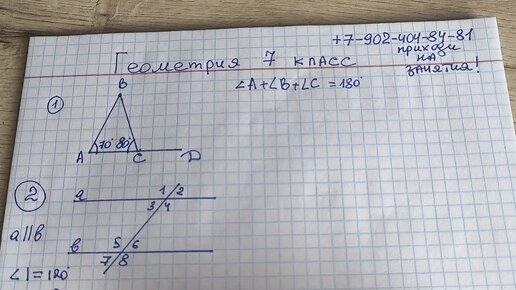 +7-902-404-84-81
приходи
на
занятия!
Геометрия 7 класс
∠A+∠B+∠C=180°
1
B
70° 80°
A C D
2
a 1 2
3 4
a||b
в 5 6
7 8
∠1=120°